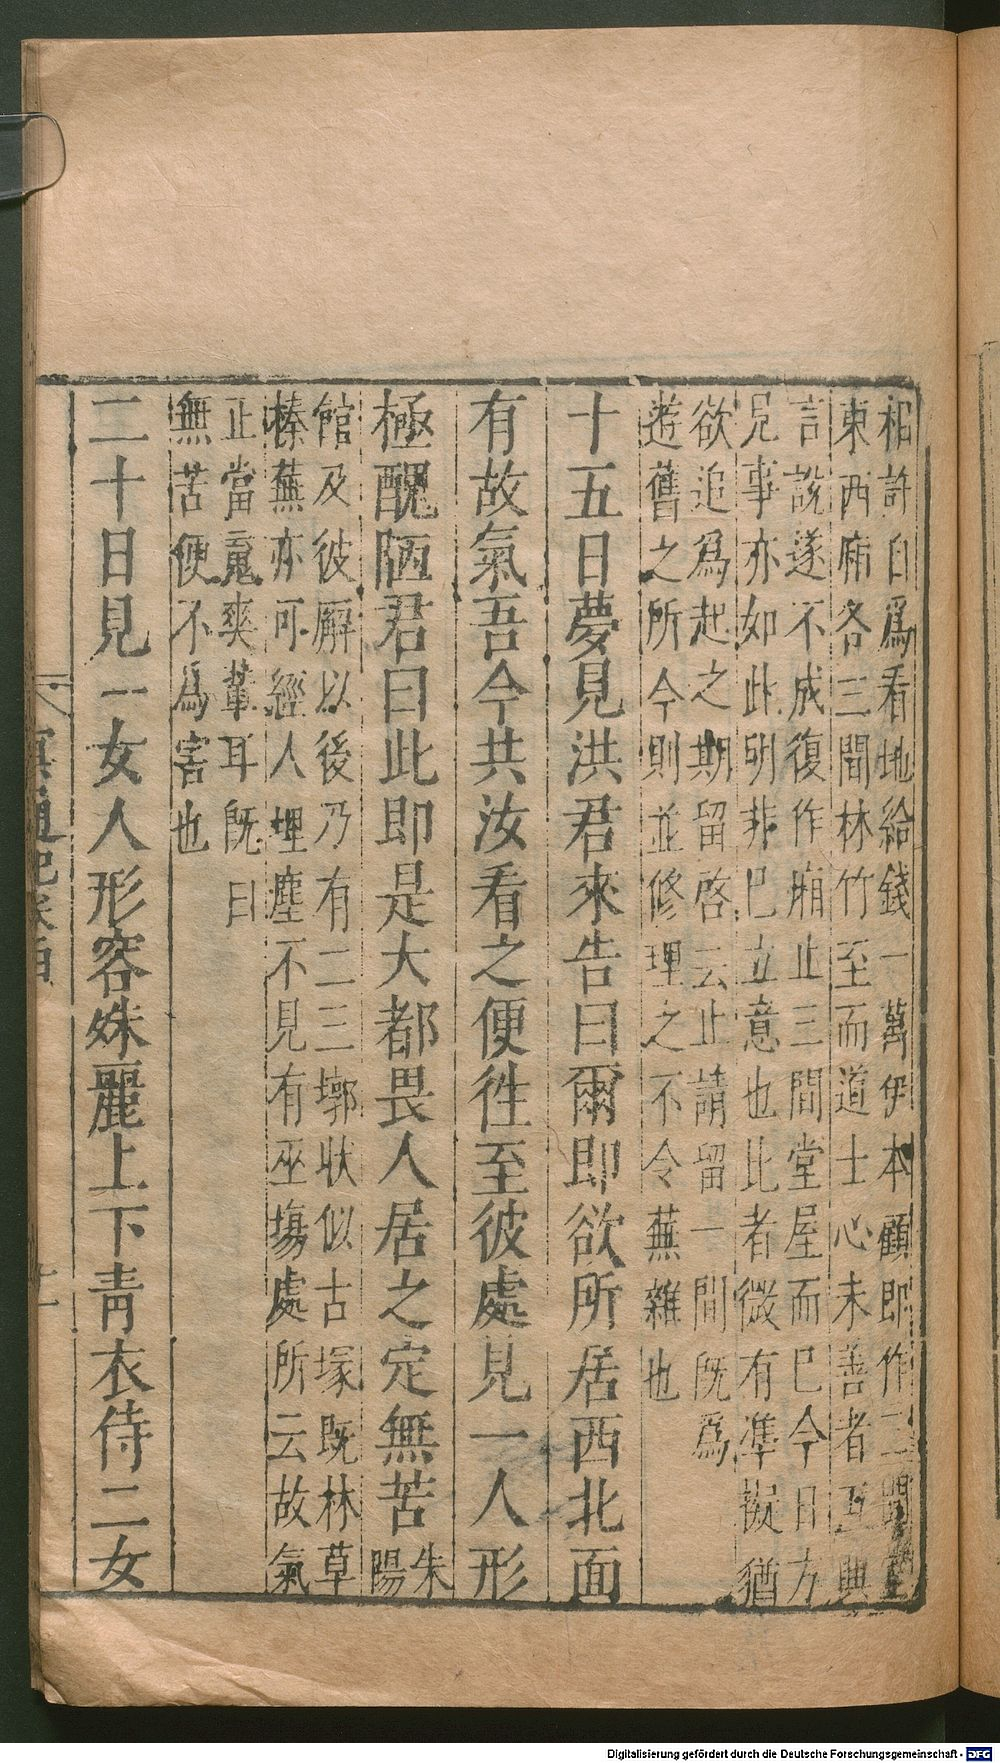 相許自爲看地給錢一萬伊本顧即作三間堂
東西廂各三間林竹至而道士心未善者互興
言說遂不成復作廂止三間堂屋而巳今日方
兄事亦如此明非巳立意也比者微有凖擬猶
欲追爲起之期留啓云止請留一間旣爲
遊舊之所今則並修理之不令蕪雜也
十五日夢見洪君來告曰爾即欲所居西北面
有故氣吾今共汝看之便徃至彼處見一人形
極醜陋君曰此即是大都畏人居之定無苦朱
陽
館及彼廨以後乃有二三墎狀似古塚旣林草
榛蕪亦可經人埋塵不見有巫塲處所云故氣
止當䰟爽輩耳旣曰
無苦便不為害也
二十日見一女人形容姝麗上下靑衣侍二女
冥通記卷四
十一
Digitalisierung gefördert durch die Deutsche Forschungsgemeinschaft - DFG